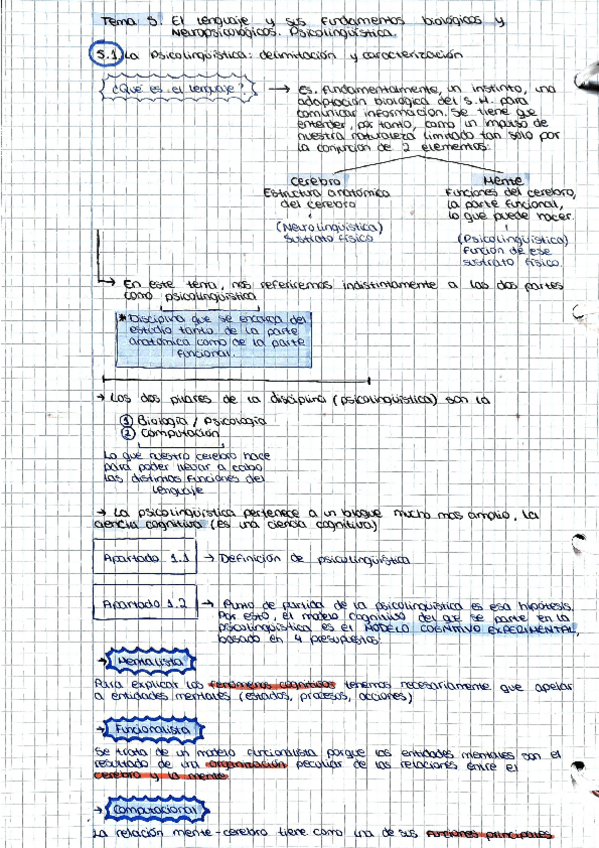 Tema 5. El lenguaje y sus fundamentos biológicos y
Neuropsicológicos. Psicolingüística.
5.1 La Psicolingüística: delimitación y caracterización
¿Qué es el lenguaje? → Es, fundamentalmente, un instinto, una
adaptación biológica del S.H. para
comunicar información. Se tiene que
entender, por tanto, como un impulso de
nuestra naturaleza limitado tan solo por
la conjunción de 2 elementos:
Cerebro
Estructura anatómica
del cerebro
(Neurolingüística)
Sustrato físico
Mente
Funciones del cerebro,
la parte funcional,
lo que puede hacer.
(Psicolingüística)
Función de ese
sustrato físico.
→ En este tema, nos referiremos indistintamente a las dos partes
como psicolingüística
* Disciplina que se encarga del
estudio tanto de la parte
anatómica como de la parte
funcional.
→ Los dos pilares de la disciplina (psicolingüística) son la
1 Biología / Psicología
2 Computación
Lo que nuestro cerebro hace
para poder llevar a cabo
las distintas funciones del
lenguaje
→ La psicolingüística pertenece a un bloque mucho mas amplio, la
ciencia cognitiva (es una ciencia cognitiva)
Apartado 1.1 → Definición de psicolingüística
Apartado 1.2 → Punto de partida de la psicolingüística es esa hipótesis.
Por esto, el modelo cognitivo del que se parte en la
psicolingüística es el MODELO COGNITIVO EXPERIMENTAL,
basado en 4 presupuestos:
→ Mentalista
Para explicar los fenómenos cognitivos tenemos necesariamente que apelar
a entidades mentales (estados, procesos, acciones)
→ Funcionalista
Se trata de un modelo funcionalista porque las entidades mentales son el
resultado de una organización peculiar de las relaciones entre el
cerebro y la mente
→ Computacional
La relación mente-cerebro tiene como una de sus funciones principales